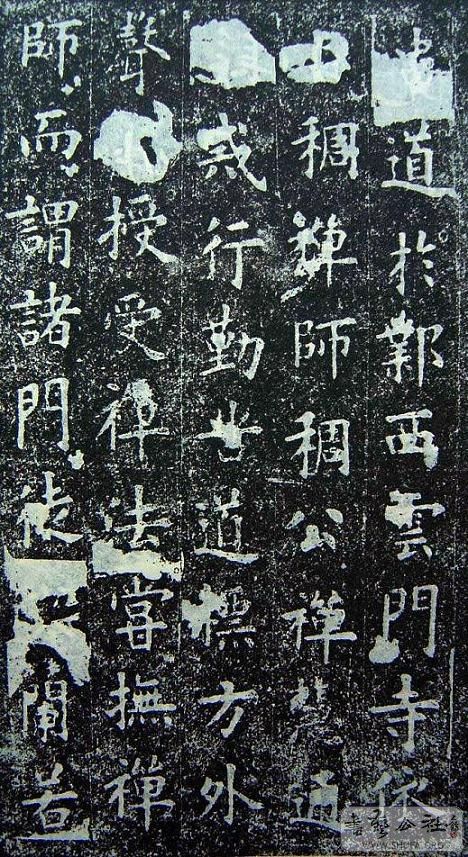 道於鄴西雲門寺依
稠禪師稠公禪慧通
戒行勤苦道標方外
聲授受禪法嘗撫禪
師而謂諸門徒闌若
書藝公社